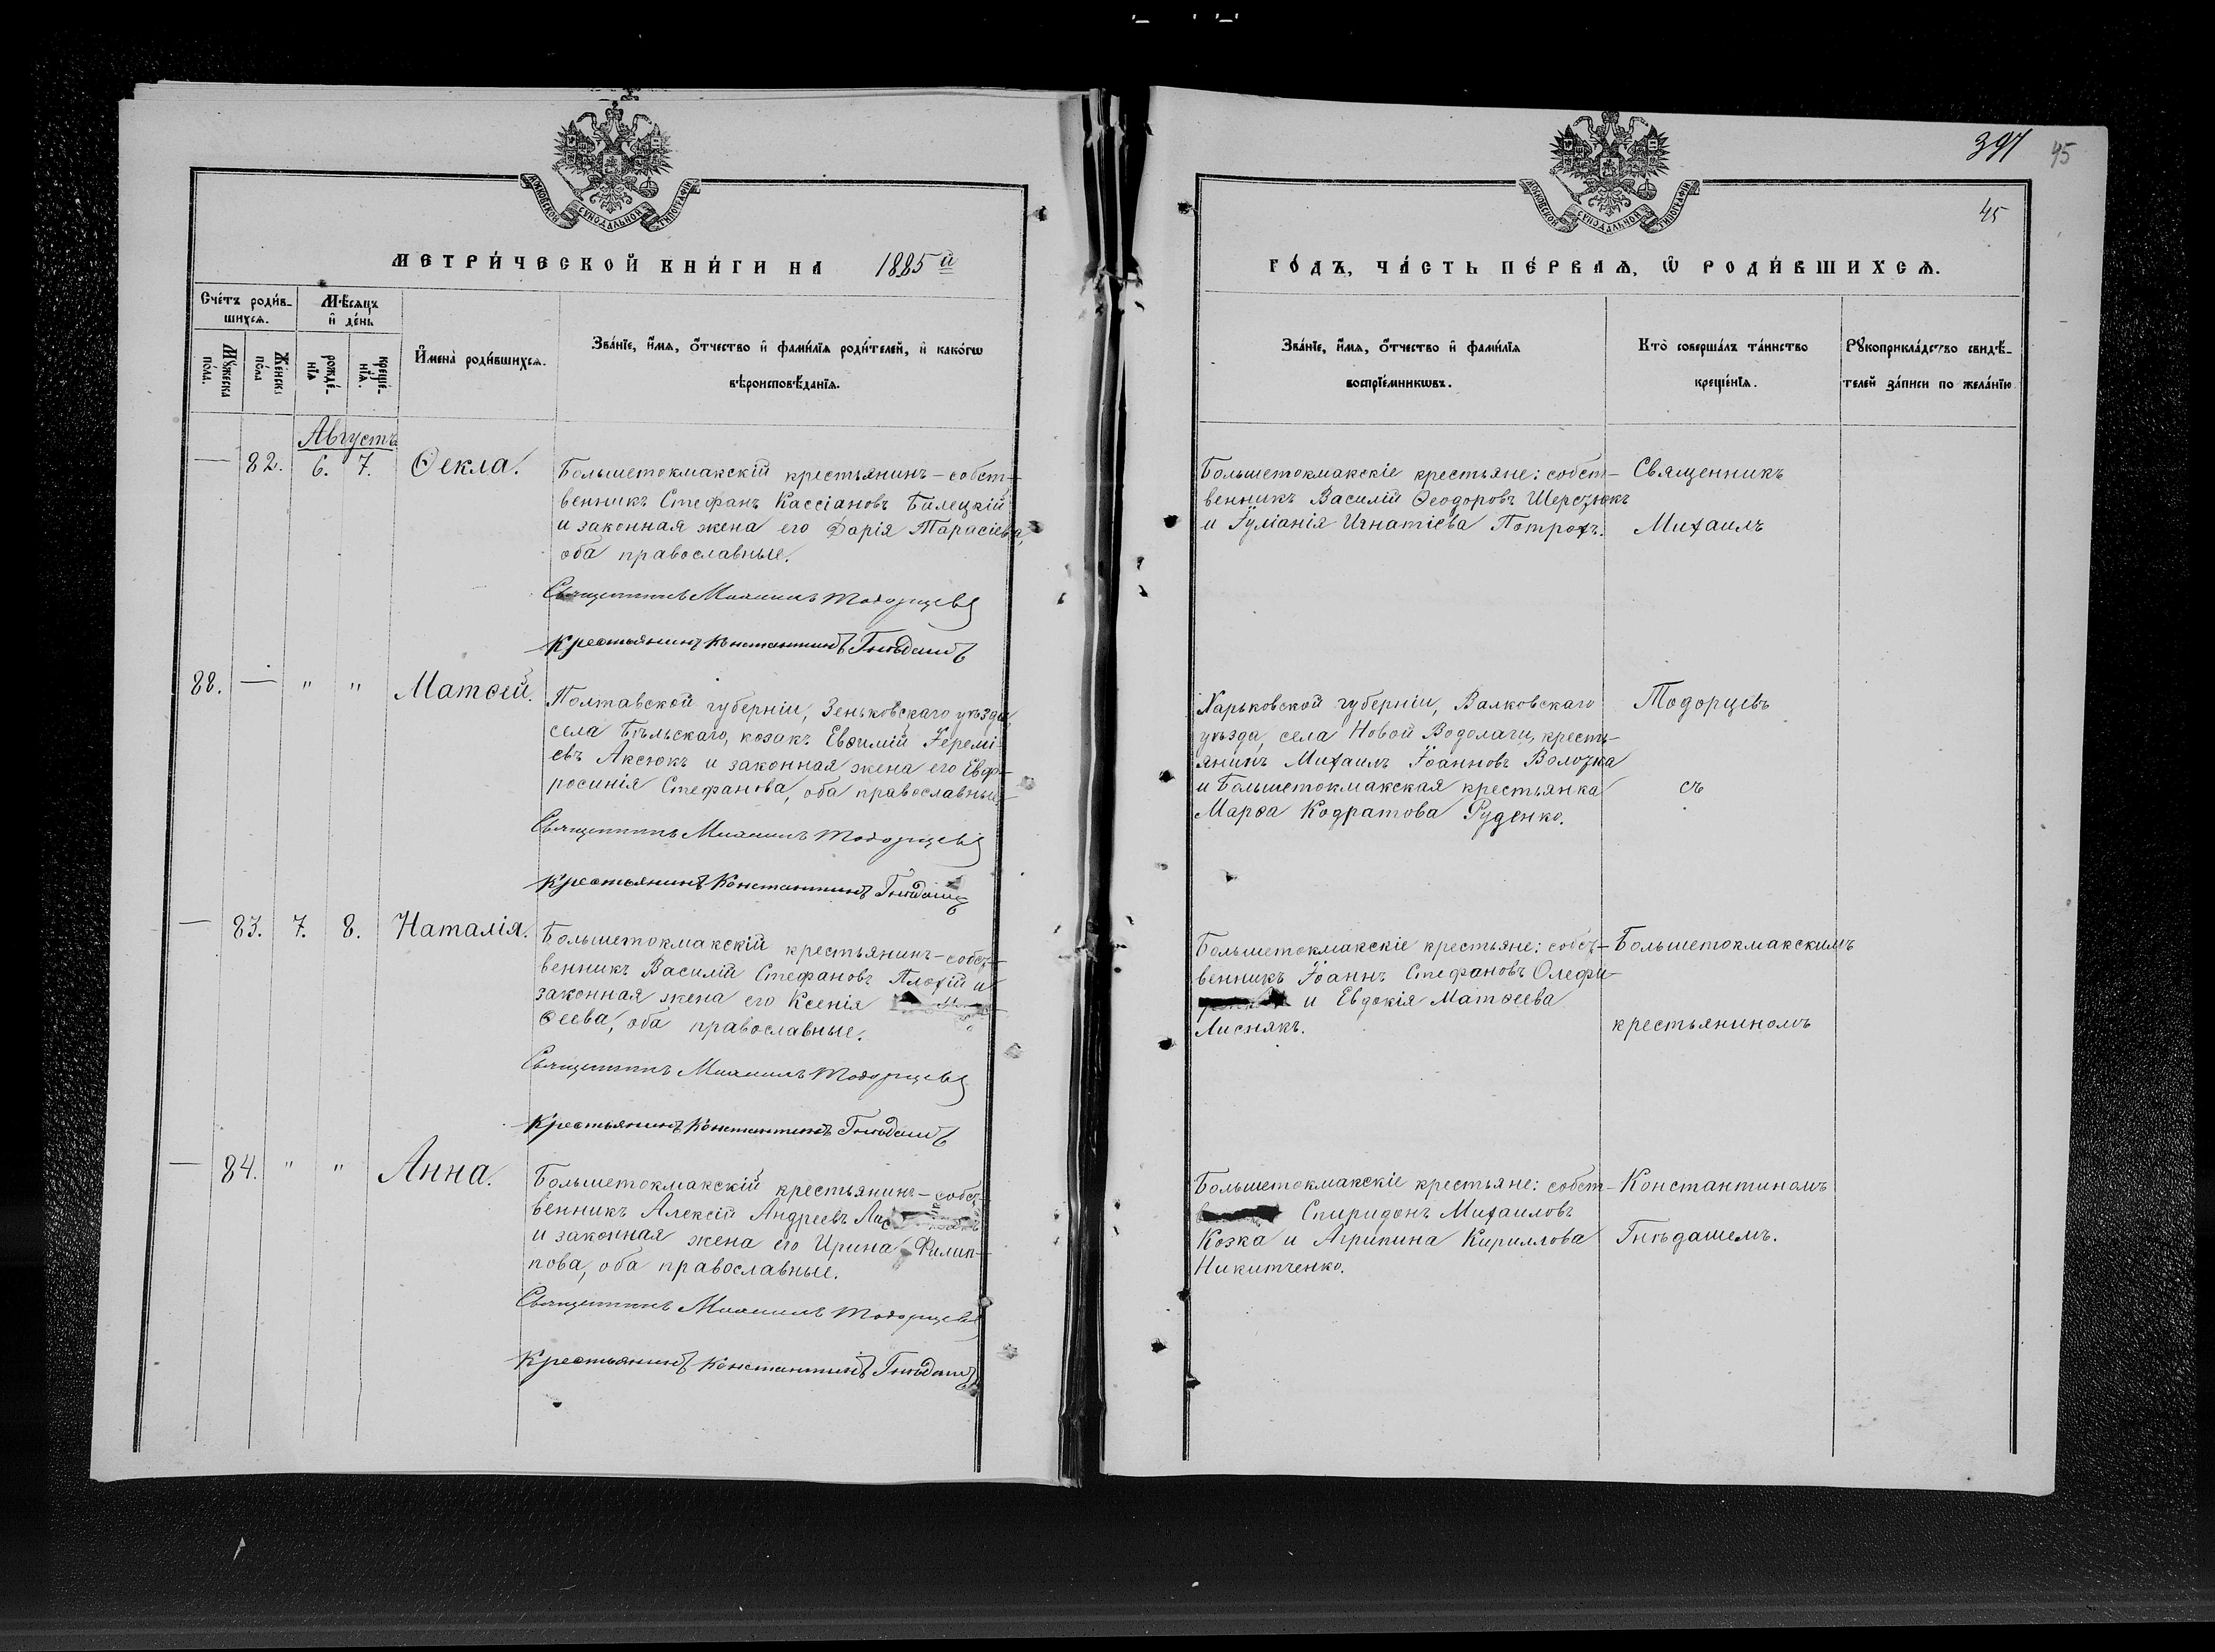 МОСКОВСКОЙ СѴНОДАЛЬНОЙ ТИПОГРАФІИ
МЕТРИ́ЧЕСКОЙ КНИ́ГИ НА 1885й
Сче́тъ роди́в-
шихсѧ.
Мѣ́сѧцъ
и҆ де́нь
Мꙋ́жеска
по́ла.
Же́нска
по́ла
рожде́-
нїѧ
креще́-
нїѧ.
И҆мена̀ роди́вшихсѧ.
Зва́нїе, и҆́мѧ, ѻ҆́тчество и҆ фами́лїѧ роди́телей, и҆ како́гѡ
вѣроисповѣ́данїѧ.
Августъ
— 82. 6. 7. Ѳекла.
Большетокмакскій крестьянинъ-собст-
венникъ Стефанъ Кассіановъ Билецкій
и законная жена его Дарія Тарасіева,
оба православные.
Священникъ Михаилъ Тодорцевъ
Крестьянинъ Константинъ Гнѣдашъ
88. — " " Матѳей.
Полтавской губерніи, Зеньковскаго уѣзда,
села Бѣльскаго, козакъ Евѳимій Іеремі-
евъ Аксюкъ и законная жена его Евф-
росинія Стефанова, оба православные.
Священникъ Михаилъ Тодорцевъ
Крестьянинъ Константинъ Гнѣдашъ
— 83. 7. 8. Наталія.
Большетокмакскій крестьянинъ-собст-
венникъ Василій Стефановъ Плохій и
законная жена его Ксенія
ѳеева, оба православные.
Священникъ Михаилъ Тодорцевъ
Крестьянинъ Константинъ Гнѣдашъ
— 84. " " Анна.
Большетокмакскій крестьянинъ-собст-
венникъ Алексій Андреевъ
и законная жена его Ирина Филип-
пова, оба православные.
Священникъ Михаилъ Тодорцевъ
Крестьянинъ Константинъ Гнѣдашъ
397 45
45
МОСКОВСКОЙ СѴНОДАЛЬНОЙ ТИПОГРАФІИ
ГО́ДЪ, ЧА́СТЬ ПЕ́РВАѦ, Ѡ҆ РОДИ́ВШИХСѦ.
Зва́нїе, и҆́мѧ, ѻ҆́тчество и҆ фами́лїѧ
воспрїе́мникѡвъ.
Кто̀ соверша́лъ та́инство
креще́нїѧ.
Рꙋкоприкла́дство свидѣ́-
телей за́писи по жела́нїю
Большетокмакскіе крестьяне: собст-
венникъ Василій Ѳеодоровъ Шерстюкъ
и Іуліанія Игнатіева Потрохъ.
Харьковской губерніи, Валковскаго
уѣзда, села Новой Водолаги, кресть-
янинъ Михаилъ Іоанновъ Волочка
и Большетокмакская крестьянка
Марѳа Кодратова Руденко.
Большетокмакскіе крестьяне: собст-
венникъ Іоаннъ Стефановъ Олефи-
и Евдокія Матѳеева
Лиснякъ.
Большетокмакскіе крестьяне: собст-
Спиридонъ Михаиловъ
Козка и Агрипина Кириллова
Никитченко.
Священникъ
Михаилъ
Тодорцевъ
съ
Большетокмакскимъ
крестьяниномъ
Константиномъ
Гнѣдашемъ.